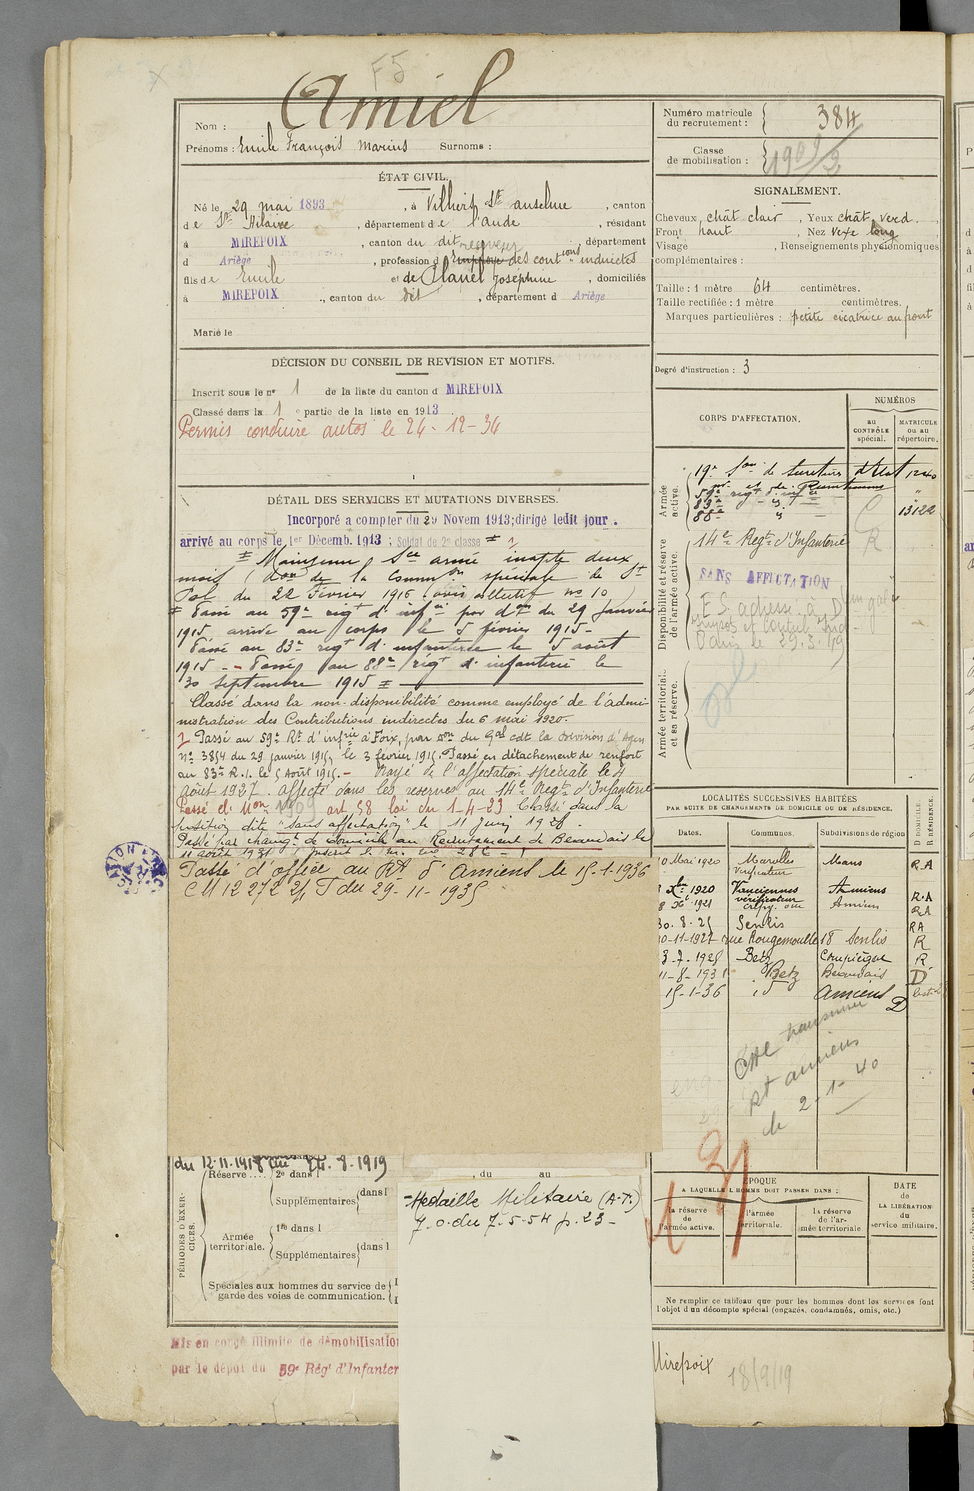 F5
Nom : Amiel
Prénoms : Emile François Marius Surnoms :
Numéro matricule du recrutement : 384
Classe de mobilisation : 1909/2
ÉTAT CIVIL.
Né le 29 mai 1893, à Villar St anselme, canton
de St Hilaire, département de l'aude, résidant
à MIREPOIX, canton du dit, département
d Ariège, profession d employé des contions indirectes
receveur
fils de Emile et de Clanel Josephine, domiciliés
à MIREPOIX, canton du dit, département d Ariège
Marié le
SIGNALEMENT.
Cheveux chât clair, Yeux chât verd.
Front haut, Nez vexe long
Visage , Renseignements physionomiques
complémentaires :
Taille : 1 mètre 64 centimètres.
Taille rectifiée : 1 mètre centimètres.
Marques particulières : petite cicatrice au front
Degré d'instruction : 3
DÉCISION DU CONSEIL DE REVISION ET MOTIFS.
Inscrit sous le no 1 de la liste du canton d MIREPOIX
Classé dans la 1 e partie de la liste en 1913
Permis conduire autos le 24-12-34
DÉTAIL DES SERVICES ET MUTATIONS DIVERSES.
Incorporé a compter du 29 Novem 1913; dirigé ledit jour.
arrivé au corps le 1er Décemb. 1913 ; Soldat de 2e classe
Maintenu Sce armé inapte deux
mois (don de la Common spéciale de St
Pol du 22 Février 1916 (avis collectif no 10)
Passé au 59e rigt d'infie par don du 29 Janvier
1915, arrivé au corps le 5 février 1915 -
Passé au 83e rigt d'infanterie le 5 août
1915 - - Passé au 88e rigt d'infanterie le
30 Septembre 1915
Classé dans la non-disponibilité comme employé de l'admi-
nistration des Contributions indirectes du 6 mai 1920.
Passé au 59e Rt d'infrie à Foix, par don du Gal cdt la division d'Agen
no 3854 du 29 janvier 1915, le 3 février 1915. Passé en détachement de renfort
au 83e R.I. le 5 Août 1915. - Rayé de l'affectation spéciale le 4
août 1927. Affecté dans les réserves au 14e Regt d'Infanterie
Passé cl. Mon 1909 art. 58 loi du 1-4-23 Classé dans la
position dite "sans affectation" le 11 juin 1928.
Passé par changt de domicile au Recrutement de Beauvais le
11 août 1931
Passé d'office au Rt d'Amiens le 15-1-1936
CM 12272 2/1 T du 29-11-1935
CORPS D'AFFECTATION.
NUMÉROS
AU CONTRÔLE spécial.
MATRICULE OU AU répertoire.
Armée active.
19e Son de Secrétaires d'Etat 1240
59e rigt d'infie
83e
88e 13122
Disponibilité et réserve de l'armée active.
14e Regt d'Infanterie
SANS AFFECTATION
E S. adresse à D
Paris le 29.3.49
Armée territoriale et sa réserve.
LOCALITÉS SUCCESSIVES HABITÉES
PAR SUITE DE CHANGEMENTS DE DOMICILE OU DE RÉSIDENCE.
Dates. Communes. Subdivisions de région D DOMICILE R RÉSIDENCE.
10 Mai 1920 Marolles vérificateur Mans R.A
Xbre 1920 Vauciennes vérificateur Amiens R.A
8 Xe 1921 Crépy. oise Amiens RA
30.8.25 Senlis RA
10-11-1927 rue Rougemaille 18 Senlis R
3-7-1928 Betz Compiègne R
11-8-1931 Betz Beauvais D
15-1-36 id Amiens D
Rt amiens
le 2-1-40
du 12.11.1918 au 24.8.1919
PÉRIODES D'EXERCICES.
Réserve.... 2e dans l
du au
Supplémentaires dans l
Armée territoriale. 1re dans l
Supplémentaires dans l
Spéciales aux hommes du service de garde des voies de communication.
Médaille Militaire (A.T.)
J.O. du 7.5.54 p. 23 -
ÉPOQUE
A LAQUELLE L'HOMME DOIT PASSER DANS :
la réserve de l'armée active.
l'armée territoriale.
la réserve de l'armée territoriale.
DATE de LA LIBÉRATION du service militaire.
Ne remplir ce tableau que pour les hommes dont les services font
l'objet d'un décompte spécial (engagés, condamnés, omis, etc.)
Mis en congé illimité de démobilisation
par le dépôt du 59e Régt d'Infanter
Mirepoix 18/9/19